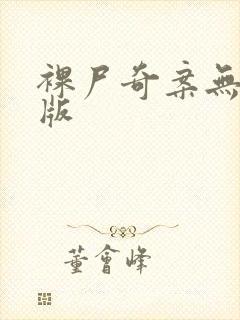 裸尸奇案無
版
董會峰